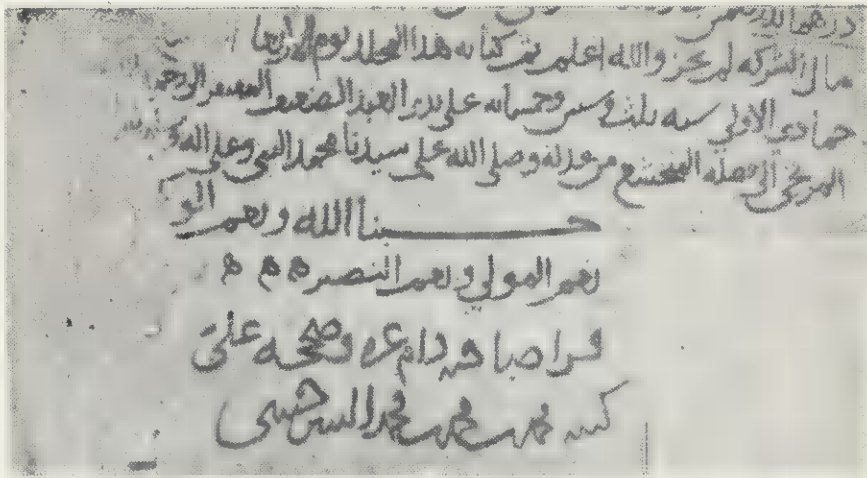 مال الشركه لم يجز والله اعلم تم كتابه هذا المجلد يوم الاربعا
جمادى الاولى سنه ثلث وستين وخمسمائه على يدى العبد الضعيف
الى فضله الخشع من عدله وصلى الله على سيدنا محمد النبى وعلى اله
حسبنا الله ونعم الو
نعم المولى ونعم النصير ه ه ه
دام عزه وصححه على
كتبه محمد بن محمد بن محمد السرخسى